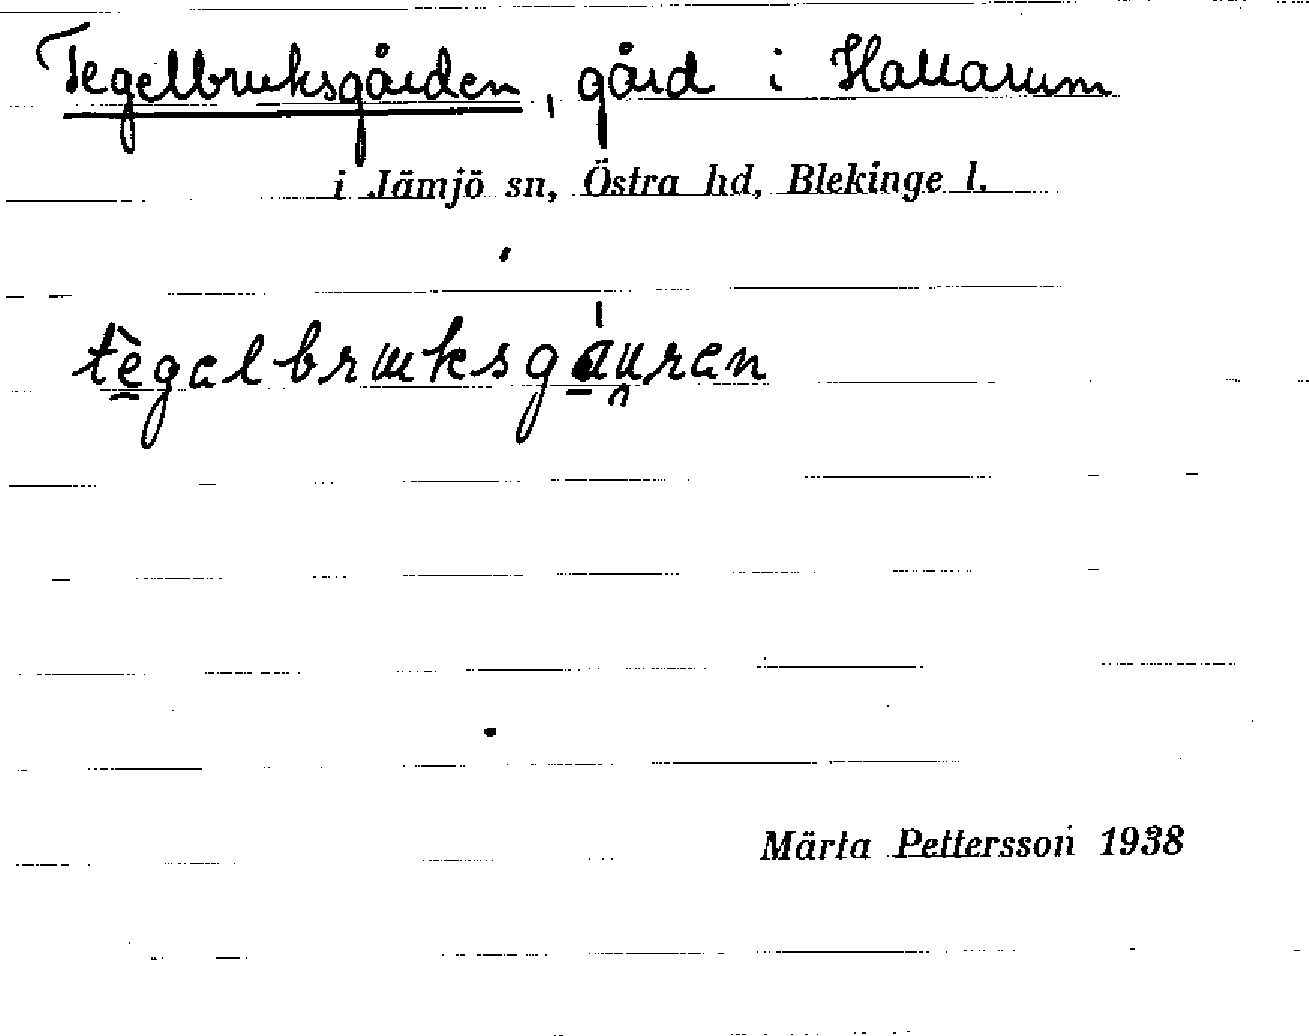 Tegelbruksgården, gård i Hallarum
i Jämjö sn, Östra hd, Blekinge l.
tègalbruksgauran
Märta Pettersson 1938